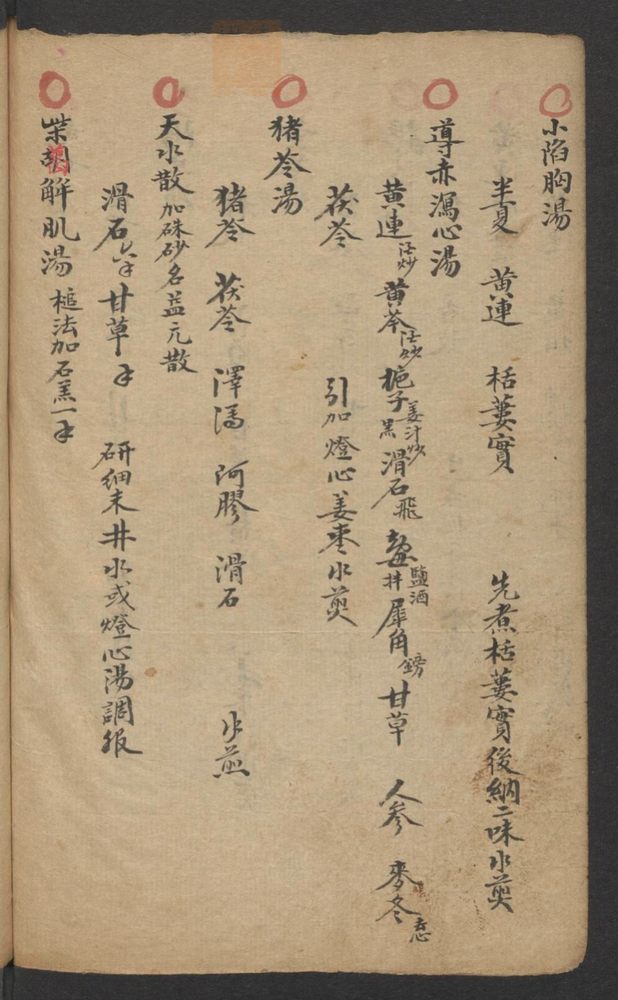 小陷胸湯
半夏 黄連 栝蔞實 先煮栝蔞實後納二味水煎
導赤瀉心湯
黄連酒炒 黄芩酒炒 梔子姜汁炒黑 滑石飛 知母鹽酒拌 犀角鎊 甘草 人參 麥冬去心
茯苓 引加燈心姜枣水煎
猪苓湯
猪苓 茯苓 澤瀉 阿膠 滑石 水煎
天水散 加硃砂名益元散
滑石六 甘草 研細末井水或燈心湯調服
柴胡解肌湯 槌法加石羔一